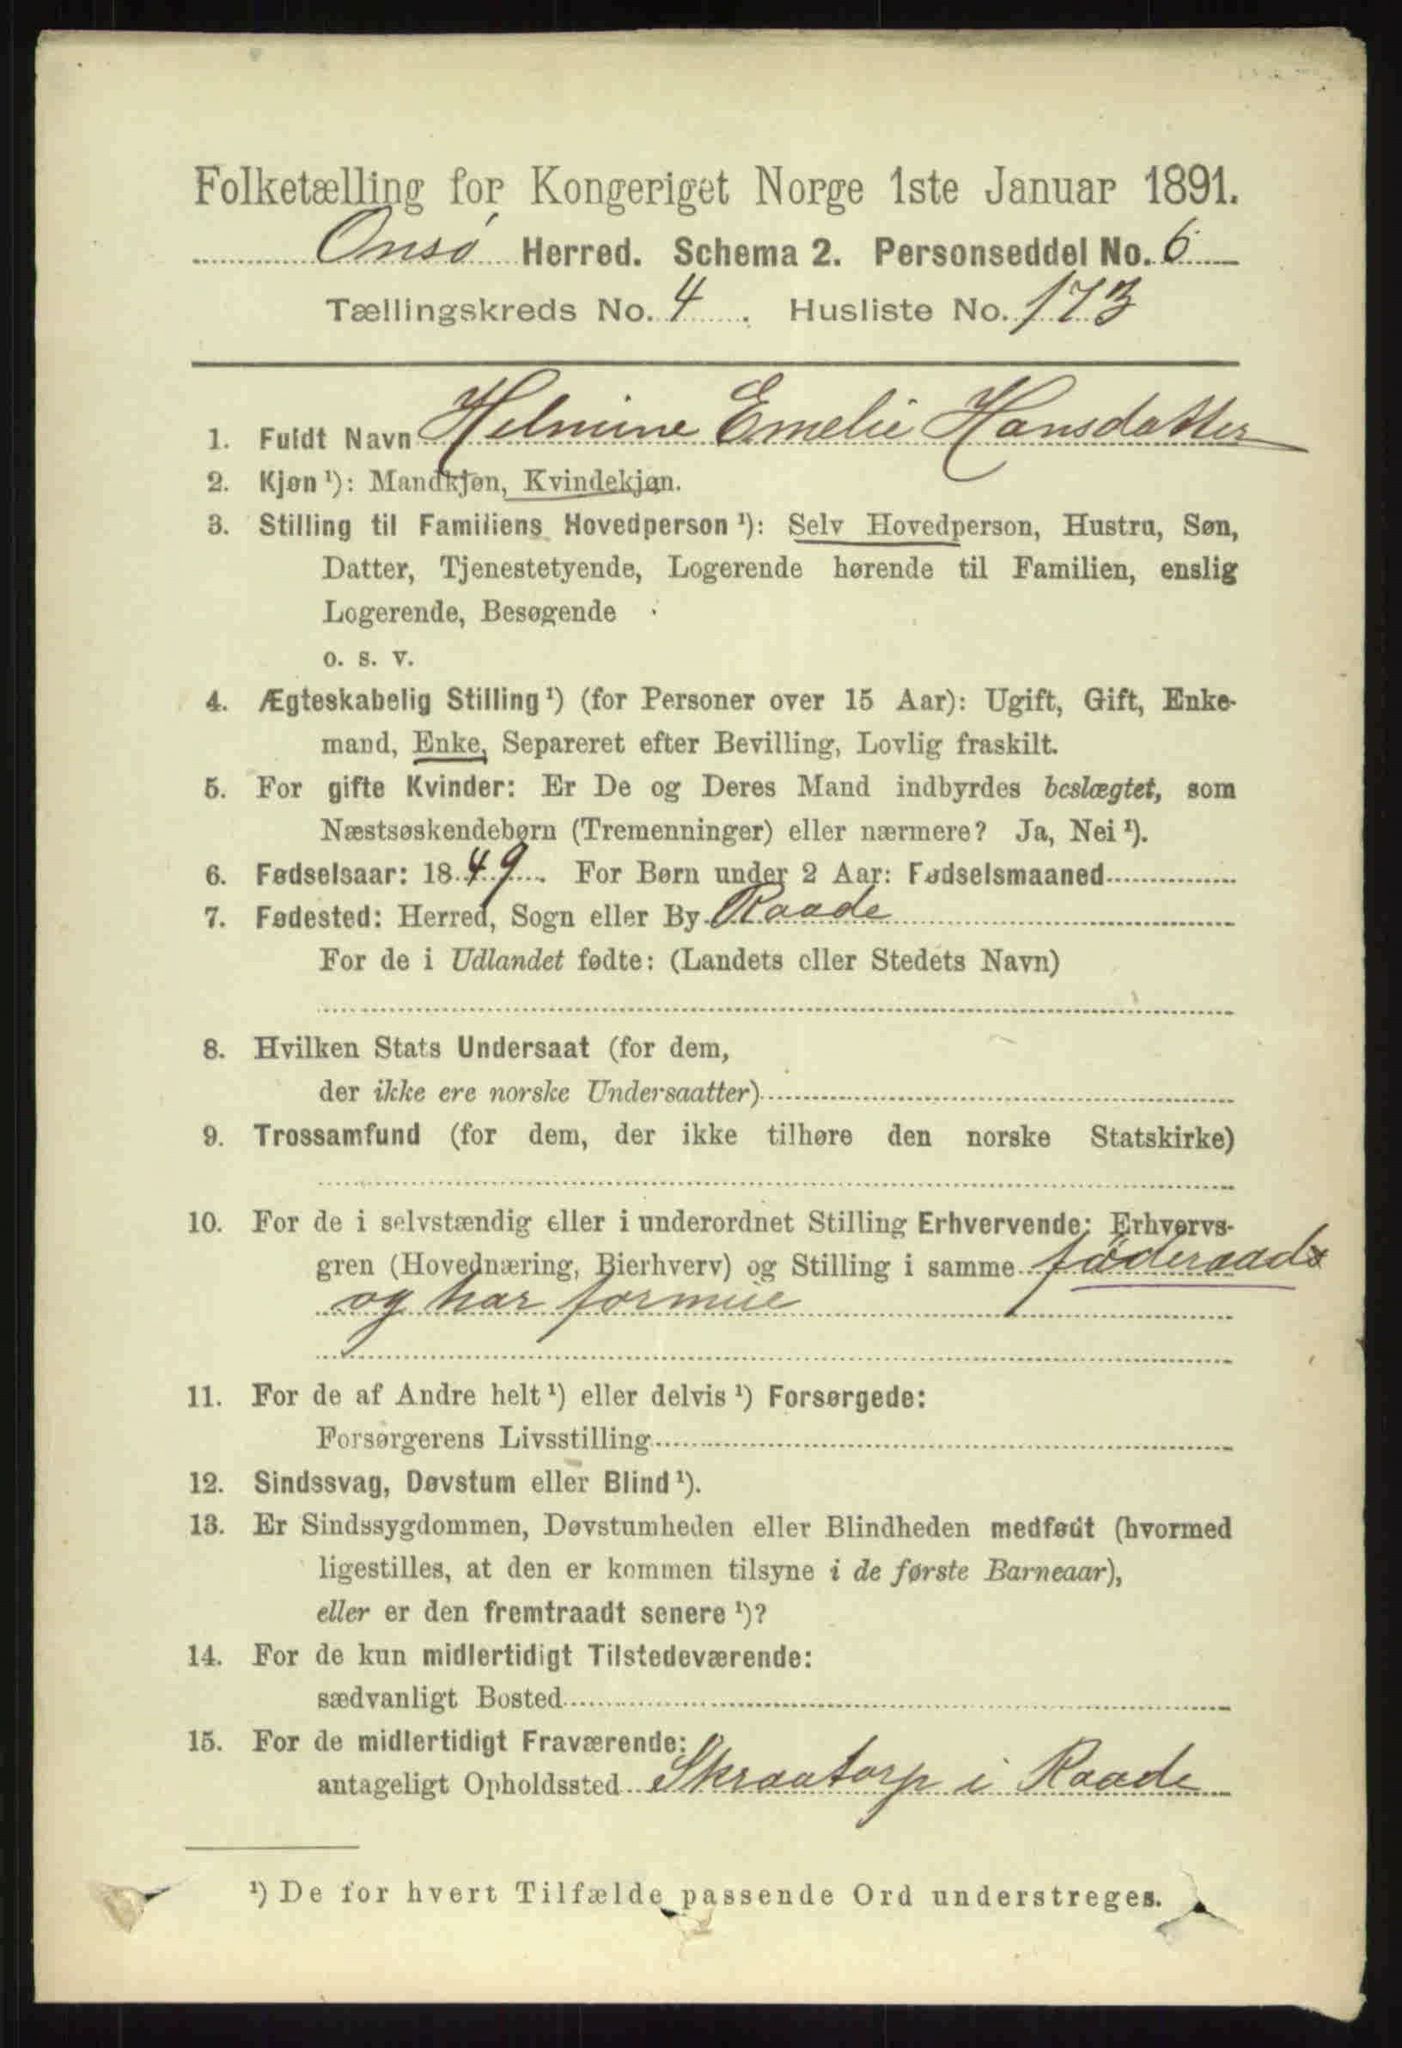 Folketælling for Kongeriget Norge 1ste Januar 1891.
Onsø Herred. Schema 2. Personseddel No. 6
Tællingskreds No. 4. Husliste No. 173
1. Fuldt Navn Helmine Emelie Hansdatter
2. Kjøn ¹): Mandkjøn, Kvindekjøn.
3. Stilling til Familiens Hovedperson ¹): Selv Hovedperson, Hustru, Søn,
Datter, Tjenestetyende, Logerende hørende til Familien, enslig
Logerende, Besøgende
o. s. v.
4. Ægteskabelig Stilling ¹) (for Personer over 15 Aar): Ugift, Gift, Enke-
mand, Enke, Separeret efter Bevilling, Lovlig fraskilt.
5. For gifte Kvinder: Er De og Deres Mand indbyrdes beslægtet, som
Næstsøskendebørn (Tremenninger) eller nærmere? Ja, Nei ¹).
6. Fødselsaar: 1849. For Børn under 2 Aar: Fødselsmaaned
7. Fødested: Herred, Sogn eller By Raade
For de i Udlandet fødte: (Landets eller Stedets Navn)
8. Hvilken Stats Undersaat (for dem,
der ikke ere norske Undersaatter)
9. Trossamfund (for dem, der ikke tilhøre den norske Statskirke)
10. For de i selvstændig eller i underordnet Stilling Erhvervende: Erhvervs-
gren (Hovednæring, Bierhverv) og Stilling i samme föderaads
og har formue
11. For de af Andre helt ¹) eller delvis ¹) Forsørgede:
Forsørgerens Livsstilling
12. Sindssvag, Døvstum eller Blind ¹).
13. Er Sindssygdommen, Døvstumheden eller Blindheden medfødt (hvormed
ligestilles, at den er kommen tilsyne i de første Barneaar),
eller er den fremtraadt senere ¹)?
14. For de kun midlertidigt Tilstedeværende:
sædvanligt Bosted
15. For de midlertidigt Fraværende:
antageligt Opholdssted Skraatorp i Raade
¹) De for hvert Tilfælde passende Ord understreges.